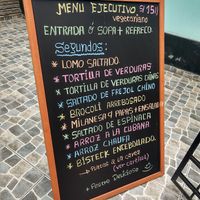 MENU EJECUTIVO S/15
vegetariano
ENTRADA ó SOPA + REFRECO
SEGUNDOS:
* LOMO SALTADO
* TORTILLA DE VERDURAS
* TORTILLA DE VERDURAS
* SALTADO DE FREJOL CHINO
* BROCOLI ARREBOZADO
* MILANESA Y PAPAS + ENSALADA
* SALTADO DE ESPINACA
* ARROZ A LA CUBANA
* ARROZ CHAUFA
* BISTECK ENCEBOLLADO
PLATOS A LA CARTA
(ver cartilla)
+ Postre Delicioso